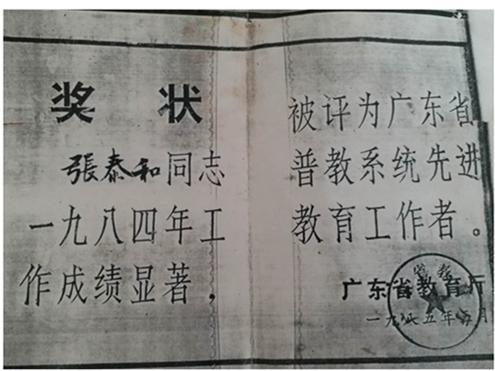 奖状
張泰和同志
一九八四年工
作成绩显著，
被评为广东省
普教系统先进
教育工作者。
广东省教育厅
一九八五年 月